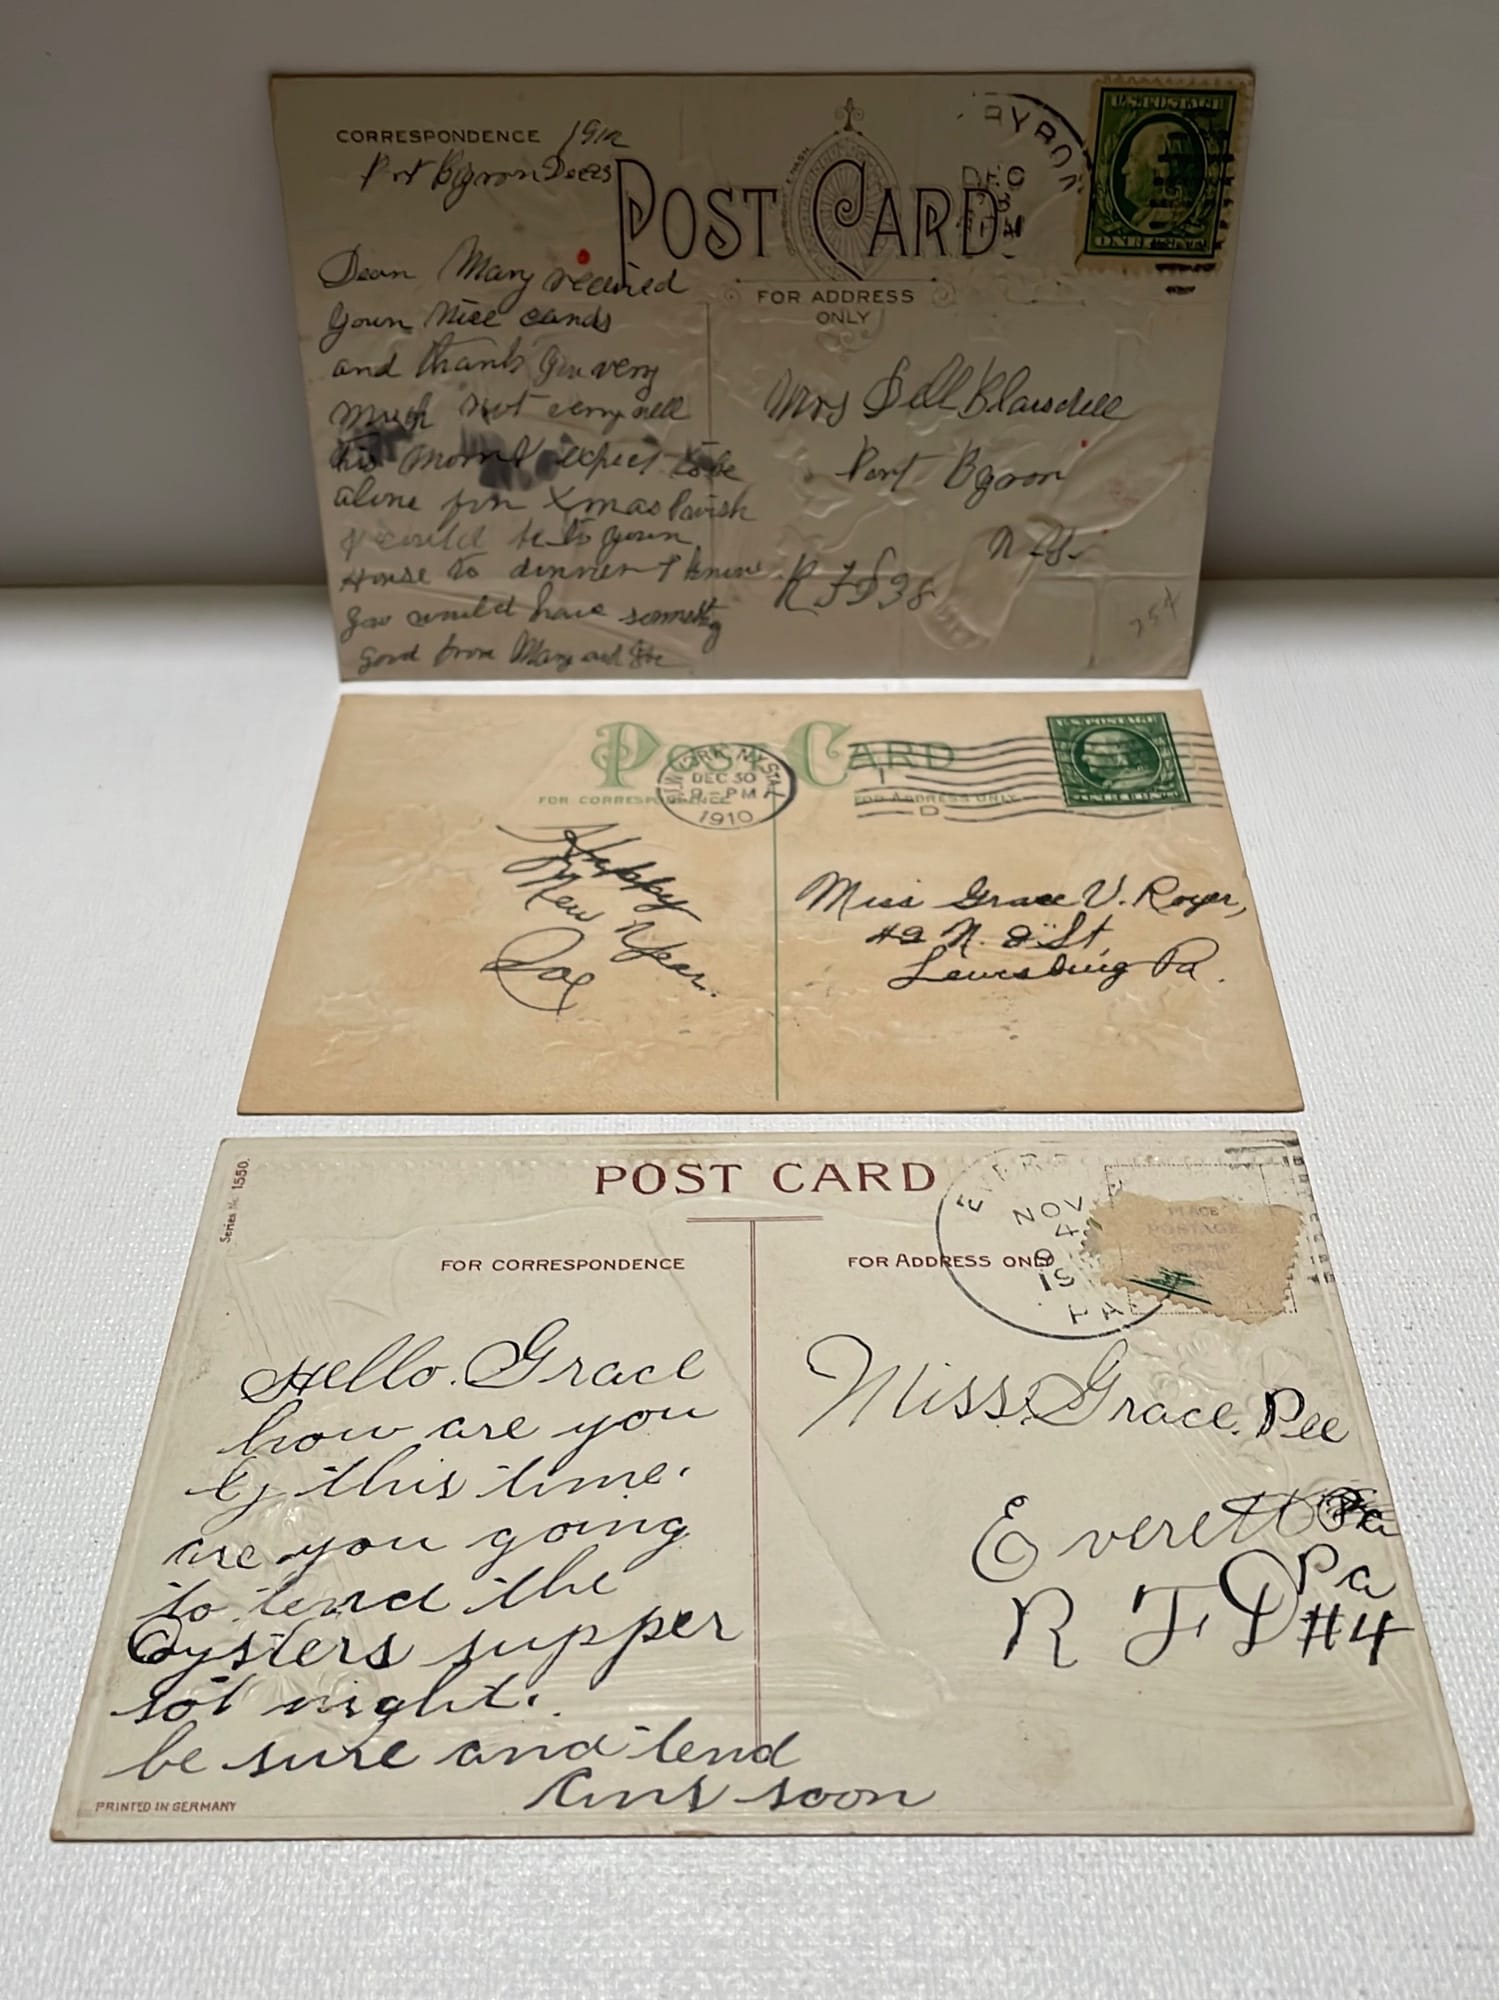 CORRESPONDENCE 1912
Port Byron Dec 25
POST CARD
FOR ADDRESS
ONLY
BYRON
DEC
U.S. POSTAGE
Dear Mary received
your nice cards
and thank you very
much not very well
this morn I expect to be
alone for Xmas I wish
I could be to your
House to dinner I know
you would have something
good from Mary and
Mrs Dell Blaisdell
Port Byron
N.Y.
R F D 38
25¢
POST CARD
FOR CORRESPONDENCE
FOR ADDRESS ONLY
YORK, N.Y. STA
DEC 30
9-PM
1910
D
U.S. POSTAGE
Happy
New Year.
Miss Grace V. Royer,
#2 N. 2" St,
Lewisburg Pa.
Series No. 1550.
POST CARD
FOR CORRESPONDENCE
FOR ADDRESS ONLY
EVER
NOV
4
19
PA
PLACE
POSTAGE
STAMP
HERE
Hello. Grace
how are you
by this time.
are you going
to tend the
Oysters supper
sat night.
be sure and tend
ans soon
Miss. Grace. Pee
Everett Pa
Pa
R F D #4
PRINTED IN GERMANY